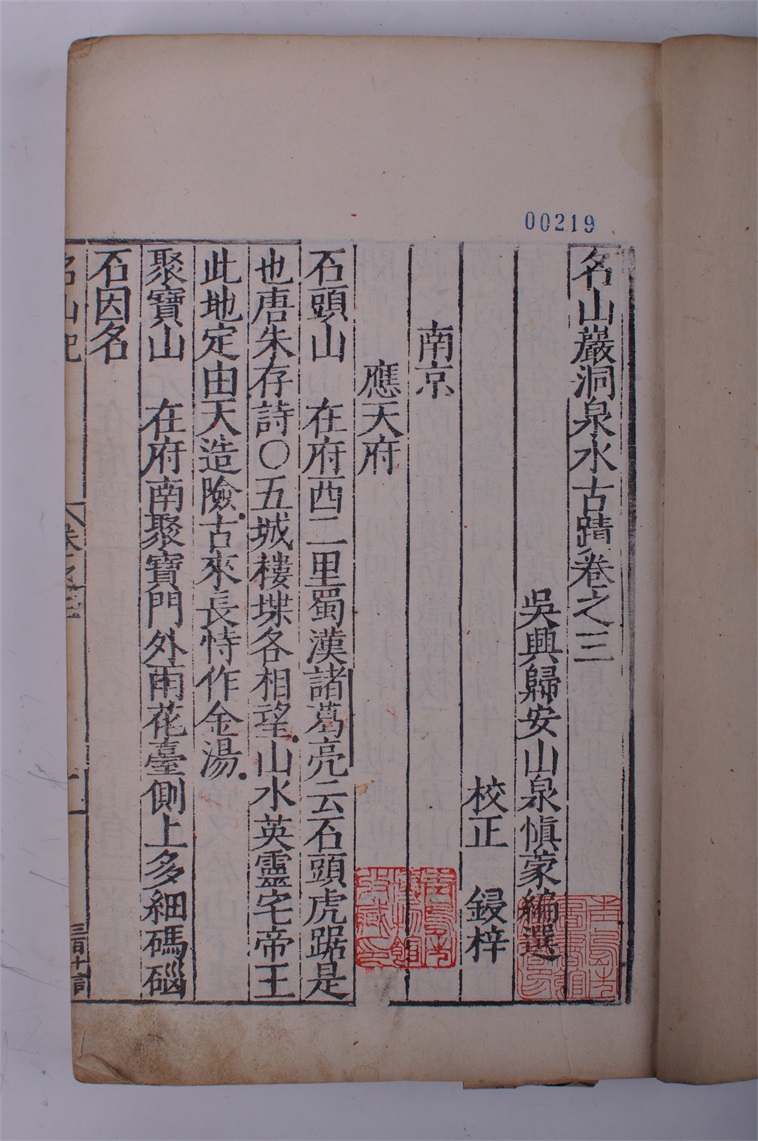 00219
名山巖洞泉水古蹟卷之三
吳興歸安山泉愼蒙編選
校正 鋟梓
南京
應天府
石頭山 在府西二里蜀漢諸葛亮云石頭虎踞是
也唐朱存詩〇五城樓堞各相望山水英靈宅帝王
此地定由天造險古來長恃作金湯
聚寶山 在府南聚寶門外雨花臺側上多細碼碯
石因名
名山記
卷之三